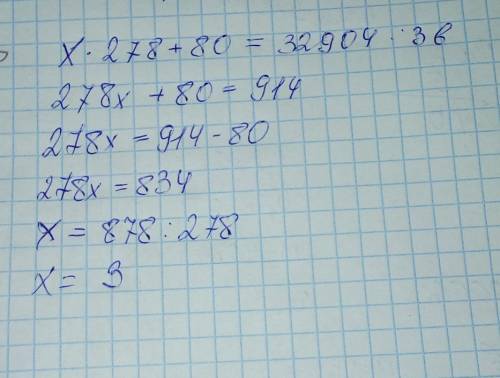 x · 278 + 80 = 32904 : 36
278x + 80 = 914
278x = 914 - 80
278x = 834
x = 878 : 278
x = 3